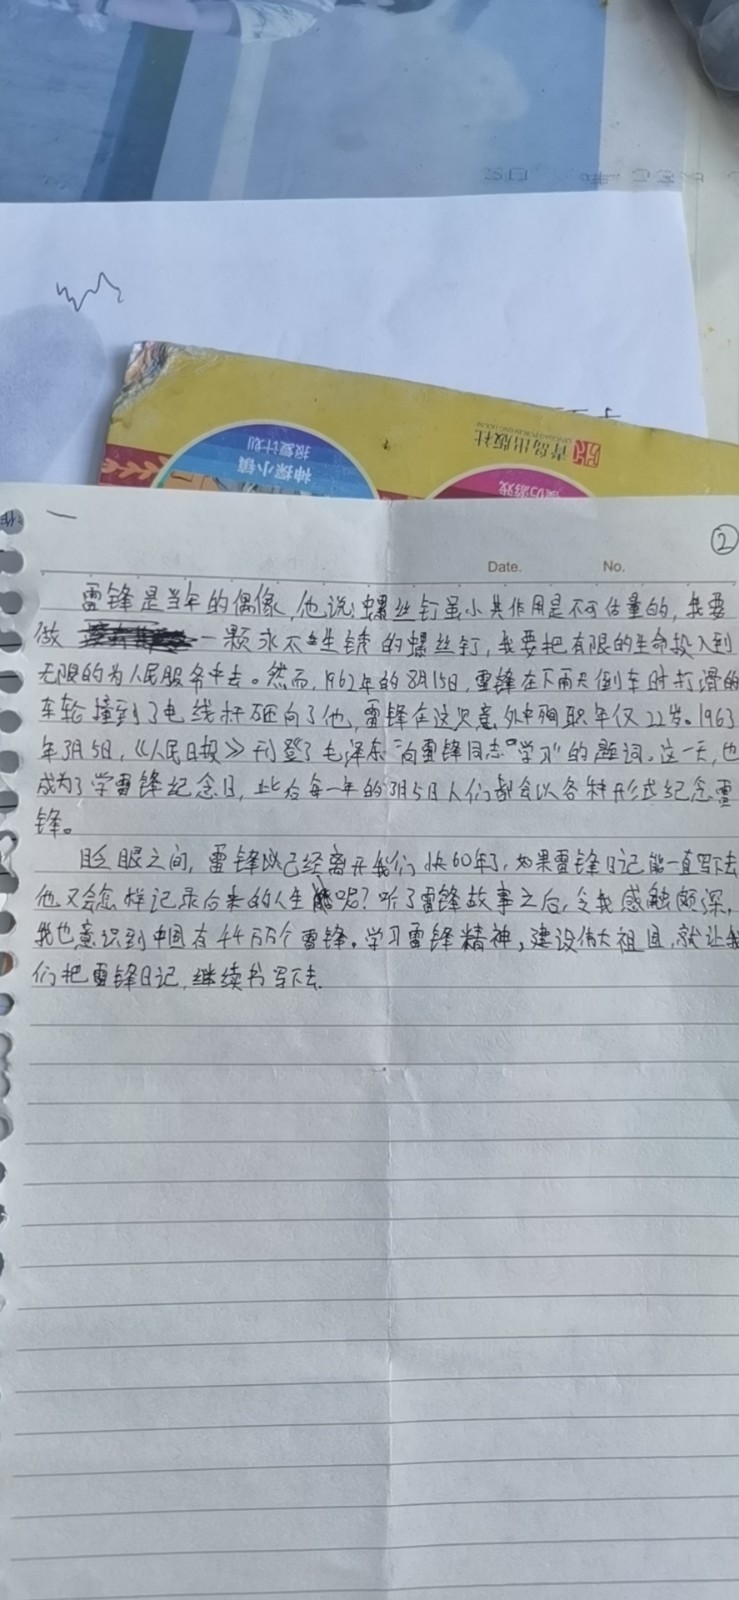 青岛出版社
QINGDAO PUBLISHING HOUSE
神探小镇
报复计划
②
Date. No.
雷锋是当年的偶像,他说:螺丝钉虽小其作用是不可估量的,我要
做一颗永不生锈的螺丝钉,我要把有限的生命投入到
无限的为人民服务中去。然而,1962年的8月15日,雷锋在下雨天倒车时打滑的
车轮撞到了电线杆砸向了他,雷锋在这次意外中殉职年仅22岁。1963
年3月5日,《人民日报》刊登了毛泽东“向雷锋同志学习”的题词。这一天,也
成为了学雷锋纪念日,此后每一年的3月5日人们都会以各种形式纪念雷
锋。
眨眼之间,雷锋以已经离开我们快60年了,如果雷锋日记能一直写下去
他又会怎样记录后来的人生呢?听了雷锋故事之后,令我感触颇深,
我也意识到中国有千千万万个雷锋。学习雷锋精神,建设伟大祖国,就让我
们把雷锋日记,继续书写下去.